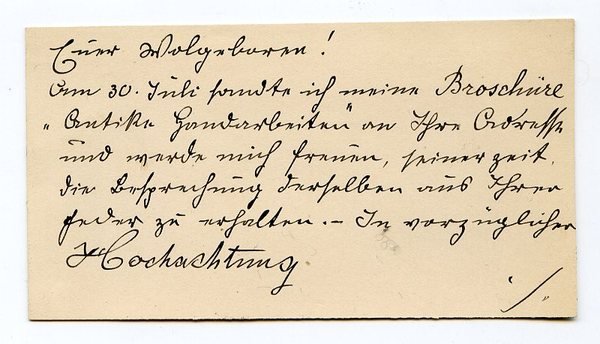 Euer Wolgeboren!
Am 30. Juli sandte ich meine Broschüre
„Antike Handarbeiten" an Ihre Adresse
und werde mich freuen, seiner zeit.
die Besprechung derselben aus Ihrer
Feder zu erhalten. – In vorzüglicher
Hochachtung